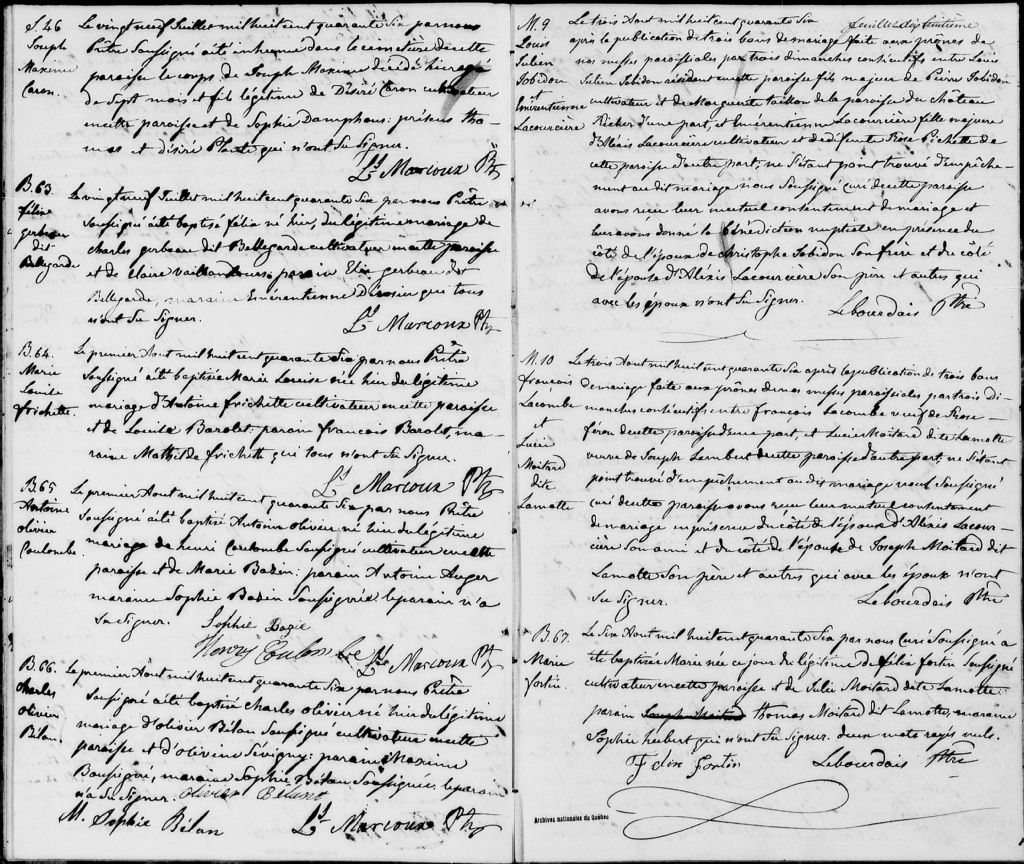 S. 46
Joseph
Maxime
Caron.
Le vingt neuf Juillet mil huit cent quarante Six par nous
Prêtre Soussigné a été inhumé dans le cimetière de cette
paroisse le corps de Joseph Maxime décédé hier agé
de Sept mois et fils légitime de Désiré Caron cultivateur
en cette paroisse et de Sophie Damphous: présens Tho-
mas et désiré Plante qui n'ont Su Signer.
Ls Marcoux Ptr
B. 63.
félix
gerbeau
dit
Bellegarde
Le vingt neuf Juillet mil huit cent quarante Six par nous Prêtre
Soussigné a été baptisé félix né hier, du légitime mariage de
Charles gerbeau dit Bellegarde cultivateur en cette paroisse
et de Claire Vaillancourt: parain gerbeau dit
Bellegarde, maraine Emérentienne qui tous
n'ont Su Signer.
Ls Marcoux Ptr
B. 64.
Marie
Louise
frichette
Le premier Aout mil huit cent quarante Six par nous Prêtre
Soussigné a été baptisée Marie Louise née hier du légitime
mariage d'Antoine frichette cultivateur en cette paroisse
et de Louise Barolet: parain françois Barolet, ma-
raine Mathilde frichette qui tous n'ont Su Signer.
Ls Marcoux Ptr
B. 65
Antoine
olivier
Coulombe.
Le premier Aout mil huit cent quarante Six par nous Prêtre
Soussigné a été baptisé Antoine olivier né hier du légitime
mariage de henri Coulombe Soussigné cultivateur en cette
paroisse et de Marie Bazin: parain Antoine Auger
maraine Sophie Bazin Soussignée: le parain n'a
Su Signer.
Sophie Bazin
Henry Coulombe
Ls Marcoux Ptr
B. 66.
Charles
olivier
Bélan.
Le premier Aout mil huit cent quarante Six par nous Prêtre
Soussigné a été baptisé Charles olivier né hier du légitime
mariage d'olivier Bélan Soussigné cultivateur en cette
paroisse et d'olivine Sévigny: parain Maxime
maraine Sophie Bélan Soussignée: le parain
n'a Su Signer. olivier Béland
M. Sophie Bélan
Ls Marcoux Ptr
feuillet dix huitième
M. 9
Louis
Julien
Jobidon
et
Emérentienne
Lacourcière
Le trois Aout mil huit cent quarante Six
après la publication de trois bans de mariage faite aux prônes de
nos messes paroissiales par trois dimanches consécutifs entre Louis
Julien Jobidon résident en cette paroisse fils majeur de Pierre Jobidon
cultivateur et de Marguerite taillon de la paroisse du Château
Richer d'une part, et Emérentienne Lacourcière fille majeure
d'Alexis Lacourcière cultivateur et de défunte Rose Pichette de
cette paroisse d'autre part; ne S'étant point trouvé d'empêche-
ment au dit mariage nous Soussigné curé de cette paroisse
avons reçu leur mutuel consentement de mariage et
leur avons donné la bénédiction nuptiale en présence du
côté de l'époux de christophe Jobidon Son frère et du côté
de l'épouse d'Alexis Lacourcière Son père et autres qui
avec les époux n'ont Su Signer.
Lebourdais Ptre
M. 10
françois
Lacombe
et
Lucie
Moitard
dite
Lamotte
Le trois Aout mil huit cent quarante Six après la publication de trois bans
de mariage faite aux prônes de nos messes paroissiales par trois Di-
manches consécutifs entre françois Lacombe veuf de Rose
féron de cette paroisse d'une part, et Lucie Moitard dite Lamotte
veuve de Joseph Lambert de cette paroisse d'autre part; ne S'étant
point trouvé d'empêchement au dit mariage nous Soussigné
curé de cette paroisse avons reçu leur mutuel consentement
de mariage en présence du côté de l'époux d'Alexis Lacour-
cière Son ami et du côté de l'épouse de Joseph Moitard dit
Lamotte Son père et autres qui avec les époux n'ont
Su Signer.
Lebourdais Ptre
B. 67.
Marie
fortin.
Le Six Aout mil huit cent quarante Six par nous Curé Soussigné a
été baptisée Marie née ce jour du légitime de félix fortin Soussigné
cultivateur en cette paroisse et de Julie Moitard dite Lamotte:
parain Joseph Moitard thomas Moitard dit Lamotte, maraine
Sophie hubert qui n'ont Su Signer. deux mots rayés nuls.
Felix fortin
Lebourdais Ptre
Archives nationales du Québec